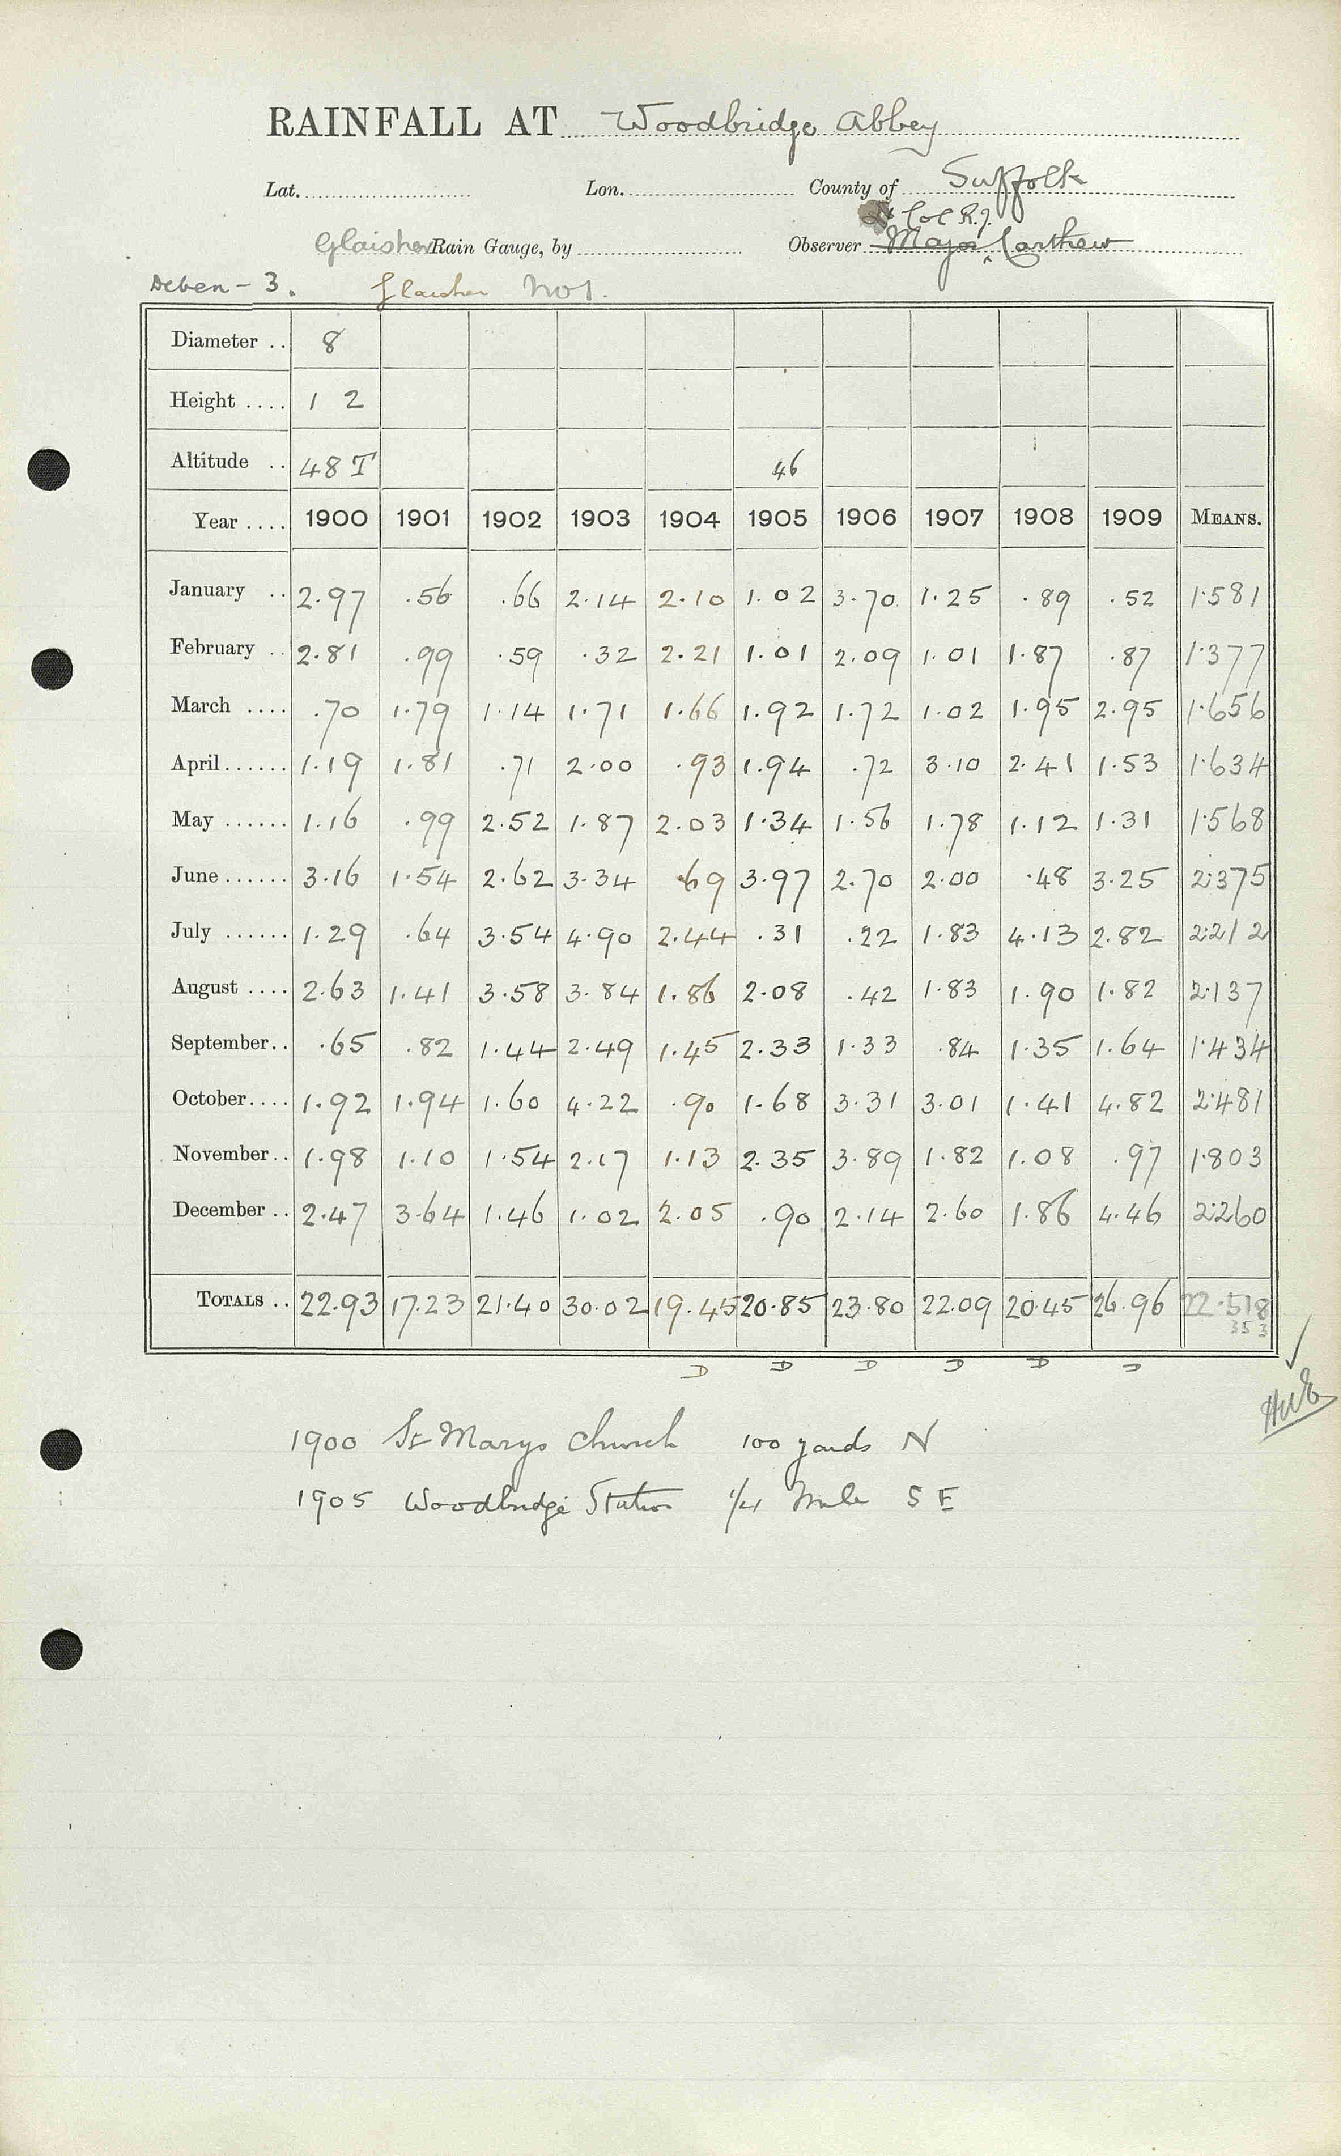 RAINFALL AT Woodbridge Abbey
Lat. Lon. County of Suffolk
Lt Col R.J.
Glaisher Rain Gauge, by Observer Major Carthew
Deben - 3. Glaisher No 1.
Diameter .. 8
Height .... 1 2
Altitude .. 48 T 46
Year .... 1900 1901 1902 1903 1904 1905 1906 1907 1908 1909 MEANS.
January .. 2.97 .56 .66 2.14 2.10 1.02 3.70 1.25 .89 .52 1.581
February .. 2.81 .99 .59 .32 2.21 1.01 2.09 1.01 1.87 .87 1.377
March .... .70 1.79 1.14 1.71 1.66 1.92 1.72 1.02 1.95 2.95 1.656
April ...... 1.19 1.81 .71 2.00 .93 1.94 .72 3.10 2.41 1.53 1.634
May ...... 1.16 .99 2.52 1.87 2.03 1.34 1.56 1.78 1.12 1.31 1.568
June ...... 3.16 1.54 2.62 3.34 .69 3.97 2.70 2.00 .48 3.25 2.375
July ...... 1.29 .64 3.54 4.90 2.44 .31 .22 1.83 4.13 2.82 2.212
August .... 2.63 1.41 3.58 3.84 1.86 2.08 .42 1.83 1.90 1.82 2.137
September .. .65 .82 1.44 2.49 1.45 2.33 1.33 .84 1.35 1.64 1.434
October .... 1.92 1.94 1.60 4.22 .90 1.68 3.31 3.01 1.41 4.82 2.481
November .. 1.98 1.10 1.54 2.17 1.13 2.35 3.89 1.82 1.08 .97 1.803
December .. 2.47 3.64 1.46 1.02 2.05 .90 2.14 2.60 1.86 4.46 2.260
TOTALS .. 22.93 17.23 21.40 30.02 19.45 20.85 23.80 22.09 20.45 26.96 22.518
353
D D D D D D
1900 St Marys Church 100 yards N
1905 Woodbridge Station 1/4 Mile S E